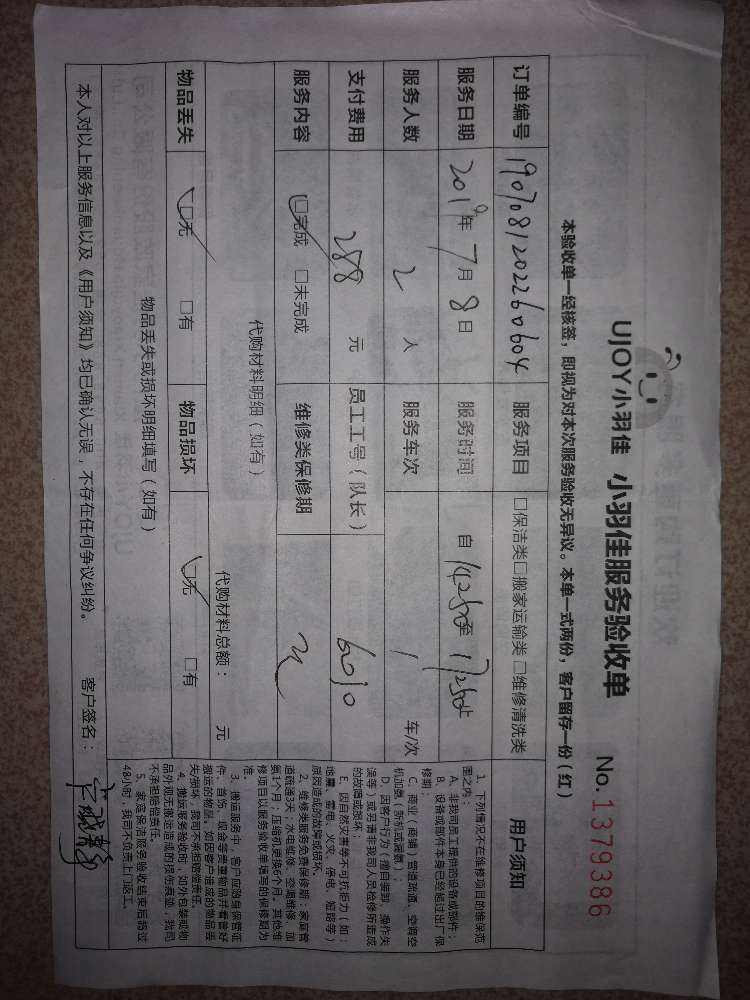 UJOY小羽佳 小羽佳服务验收单 No.1379386
本验收单一经核签，即视为对本次服务验收无异议。本单一式两份，客户留存一份（红）
订单编号 190708120226 0604 服务项目 □保洁类□搬家运输类 □维修清洗类 用户须知
服务日期 2019年 7月 8日 服务时间 自 至
服务人数 2 人 服务车次 1 车/次
支付费用 288 元 员工工号（队长） 6010
服务内容 □完成 □未完成 维修类保修期 无
代购材料明细（如有）
代购材料总额： 元
物品丢失 □无 □有 物品损坏 □无 □有
物品丢失或损坏明细填写（如有）
本人对以上服务信息以及《用户须知》均已确认无误，不存在任何争议纠纷。 客户签名：
1、下列情况不在维修项目的维保范
围之内：
A、非我司员工提供的设备或部件；
B、设备或部件本身已经超过出厂保
修期；
C、商业（商铺）管道疏通、空调空
机加氟（新机或漏氟）；
D、因客户行为（擅自装卸、操作失
误等）或另请非我司人员检修所造成
的故障或损坏；
E、因自然灾害等不可抗拒力（如：
地震、雷电、火灾、停电、短路等）
原因造成的故障或损坏。
2、维修类服务免费保修期：家庭管
道疏通3天；水电维修、空调维修、加
氟1个月；压缩机更换6个月。其他维
修项目以服务验收单填写的保修期为
准。
3、搬运服务中，客户应随身保管证
件、首饰、现金等贵重物品并看管好
搬运的物品，如因客户造成的物品丢
失/损坏，我司不承担赔偿责任。
4、搬运服务验收时，如外包装或物
品外观无搬运造成的损伤痕迹，我司
不承担赔偿责任。
5、家庭保洁服务验收结束后超过
48小时，我司不负责上门返工。